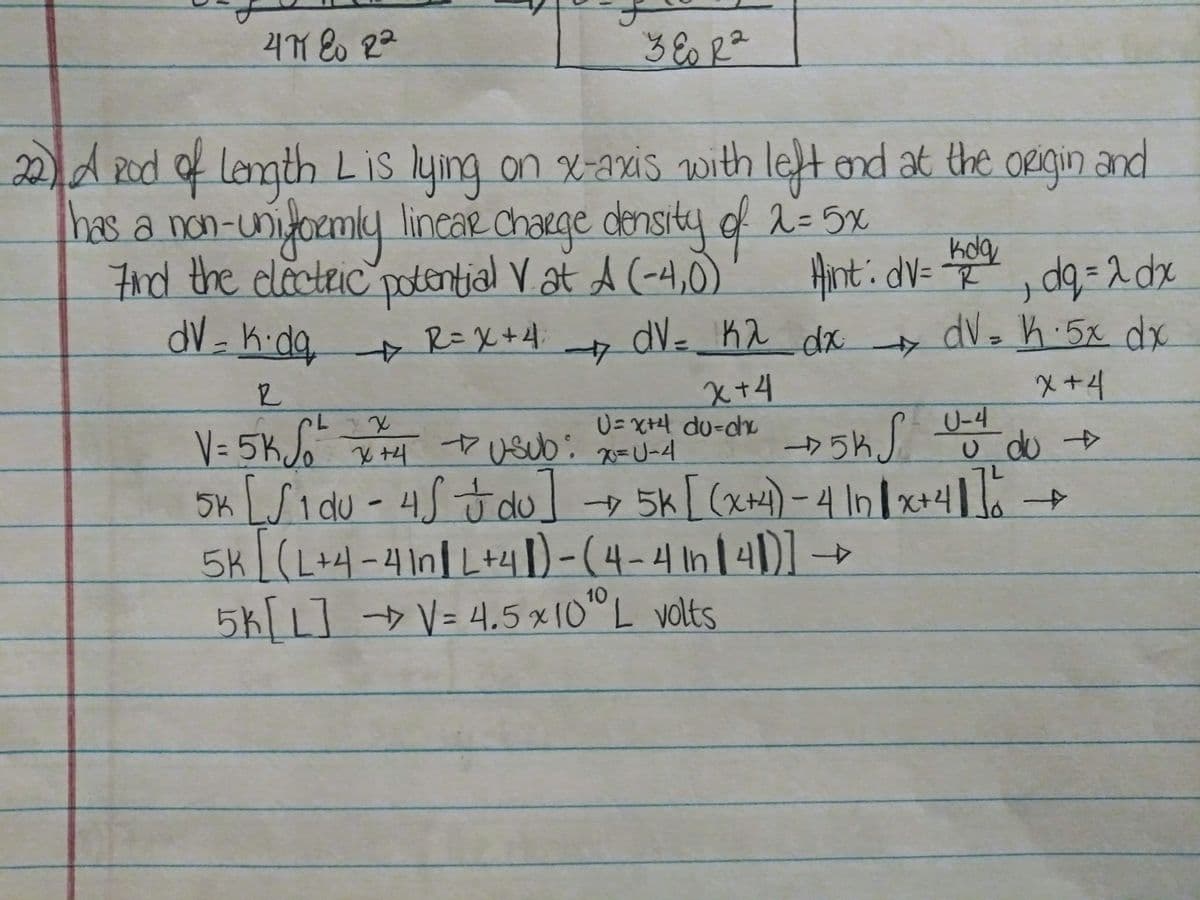 4π ε0 R²
3 ε0 R²
22) A rod of length L is lying on x-axis with left end at the origin and
has a non-uniformly linear charge density of λ = 5x
Find the electric potential V at A (-4,0) Hint: dV= kdq/R , dq = λ dx
dV = K·dq/R → R = x+4 → dV = Kλ/(x+4) dx → dV = K·5x/(x+4) dx
V = 5K ∫₀ᴸ x/(x+4) → U-sub: U = x+4 du=dx x=U-4 → 5K ∫ (U-4)/U du →
5K [∫1 du - 4∫ 1/U du] → 5K [(x+4) - 4 ln|x+4|]₀ᴸ →
5K [(L+4-4 ln|L+4|) - (4-4 ln|4|)] →
5K[L] → V = 4.5 x 10¹⁰ L volts